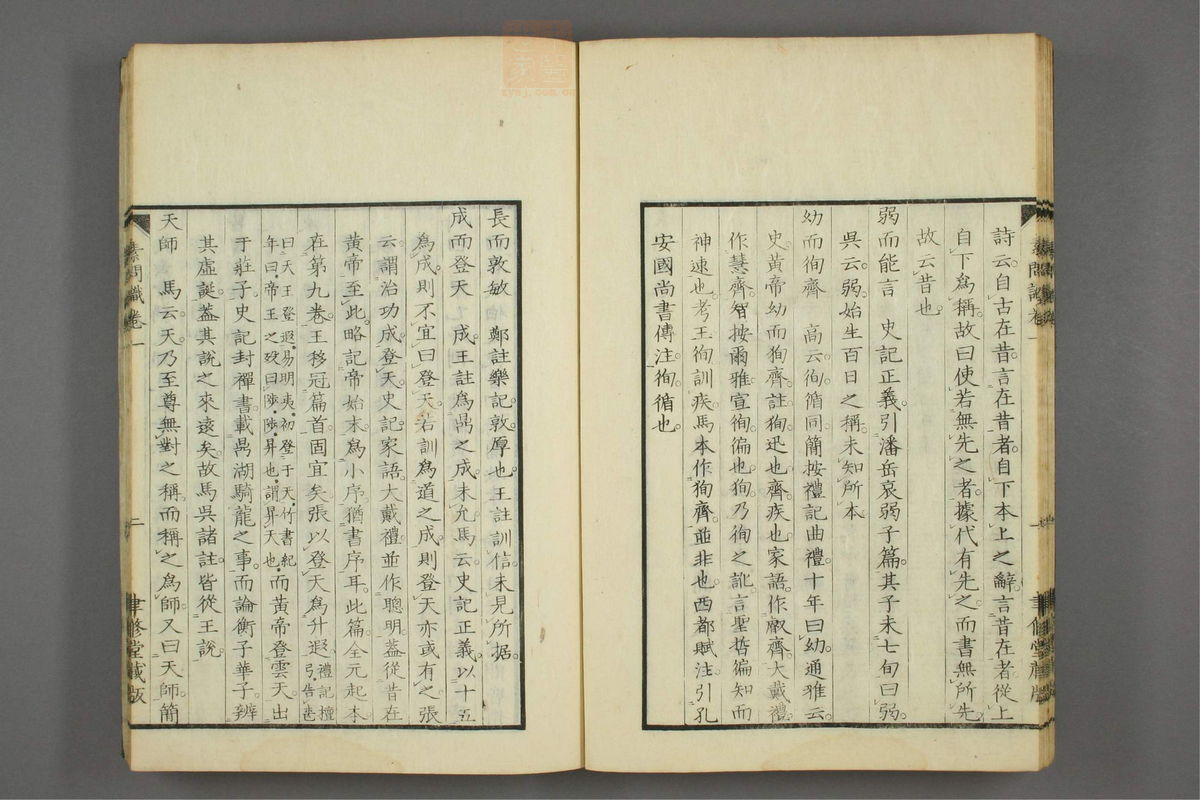 詩云。自古在昔。言在昔者。自下本上之辭。言昔在者。從上
自下爲稱。故曰使若無先之者。據代有先之。而書無所先
故云昔也。
弱而能言 史記正義。引潘岳哀弱子篇。其子未七旬曰弱
吳云。弱。始生百日之稱。未知所本
幼而徇齊 高云。徇。循同。簡按禮記曲禮。十年曰幼。通雅云
史。黃帝幼而狥齊。註。狥。迅也。齊。疾也。家語。作叡齊。大戴禮
作慧齊。智按爾雅。宣徇徧也。狥乃徇之訛。言聖哲徧知而
神速也。考王徇訓疾。馬本作狥齊。並非也。西都賦注。引孔
安國尚書傳注。徇。循也。
長而敦敏 鄭註樂記。敦。厚也。王註訓信。未見所據。
成而登天 成。王註爲鼎之成。未允。馬云。史記正義。以十五
爲成。則不宜曰登天。若訓爲道之成。則登天亦或有之。張
云。謂治功成。登天。史記家語。大戴禮。並作聰明。蓋從昔在
黃帝至此。略記帝始末。爲小序。猶書序耳。此篇。全元起本
在第九卷。王移冠篇首。固宜矣。張以登天爲升遐。禮記檀弓。告喪
曰。天王登遐。易明夷。初登于天。竹書紀年曰。帝王之歿曰陟。陟。昇也。謂昇天也。而黃帝登雲天。出
于莊子。史記封禪書。載鼎湖騎龍之事。而論衡子華子。辨
其虛誕。蓋其說之來遠矣。故馬吳諸註。皆從王說。
天師 馬云。天乃至尊無對之稱。而稱之爲師。又曰天師。簡
素問識卷一
二
聿修堂藏版